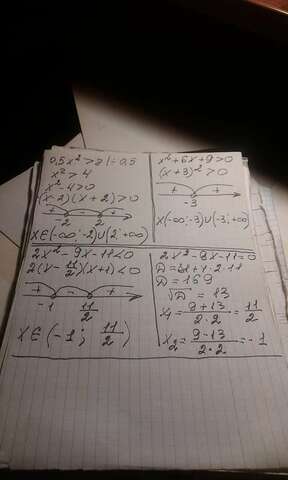 0,5x² > 2 | : 0,5
x² > 4
x² - 4 > 0
(x - 2)(x + 2) > 0
+ - +
-2 2
x ∈ (-∞; -2) ∪ (2; +∞)
x² + 6x + 9 > 0
(x + 3)² > 0
+ +
-3
x (-∞; -3) ∪ (-3; +∞)
2x² - 9x - 11 < 0
2(x - 11/2)(x + 1) < 0
+ - +
-1 11/2
x ∈ (-1; 11/2)
2x² - 9x - 11 = 0
D = 81 + 4 · 2 · 11
D = 169
√D = 13
x₁ = 9 + 13 / 2 · 2 = 11/2
x₂ = 9 - 13 / 2 · 2 = -1